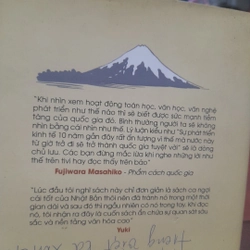 "Khi nhìn xem hoạt động toán học, văn học, văn nghệ
phát triển như thế nào thì sẽ biết được sức mạnh tiềm
tàng của quốc gia đó. Bình thường người ta sẽ không
nhìn bằng cái nhìn như thế. Lý luận kiểu như "Sự phát triển
kinh tế 10 năm gần đây rất ấn tượng vì thế mà nước này
từ giờ trở đi sẽ trở thành quốc gia tuyệt vời" sẽ là dòng
chủ lưu. Các bạn đừng mắc lừa khi nghe những lời như
thế trên tivi hay đọc thấy trên báo"
Fujiwara Masahiko - Phẩm cách quốc gia
"Lúc đầu tôi nghĩ sách này chỉ đơn giản là sách ca ngợi
cái tốt của Nhật Bản thôi nên đã tránh nó trong một thời
gian dài và sau đó thì ngẫu nhiên có nó trong tay. Khi đọc
nó, tôi nhận ra đây là cuốn sách ẩn chứa sự quan sát sâu
sắc và nền tảng văn hóa cao."
Yuki